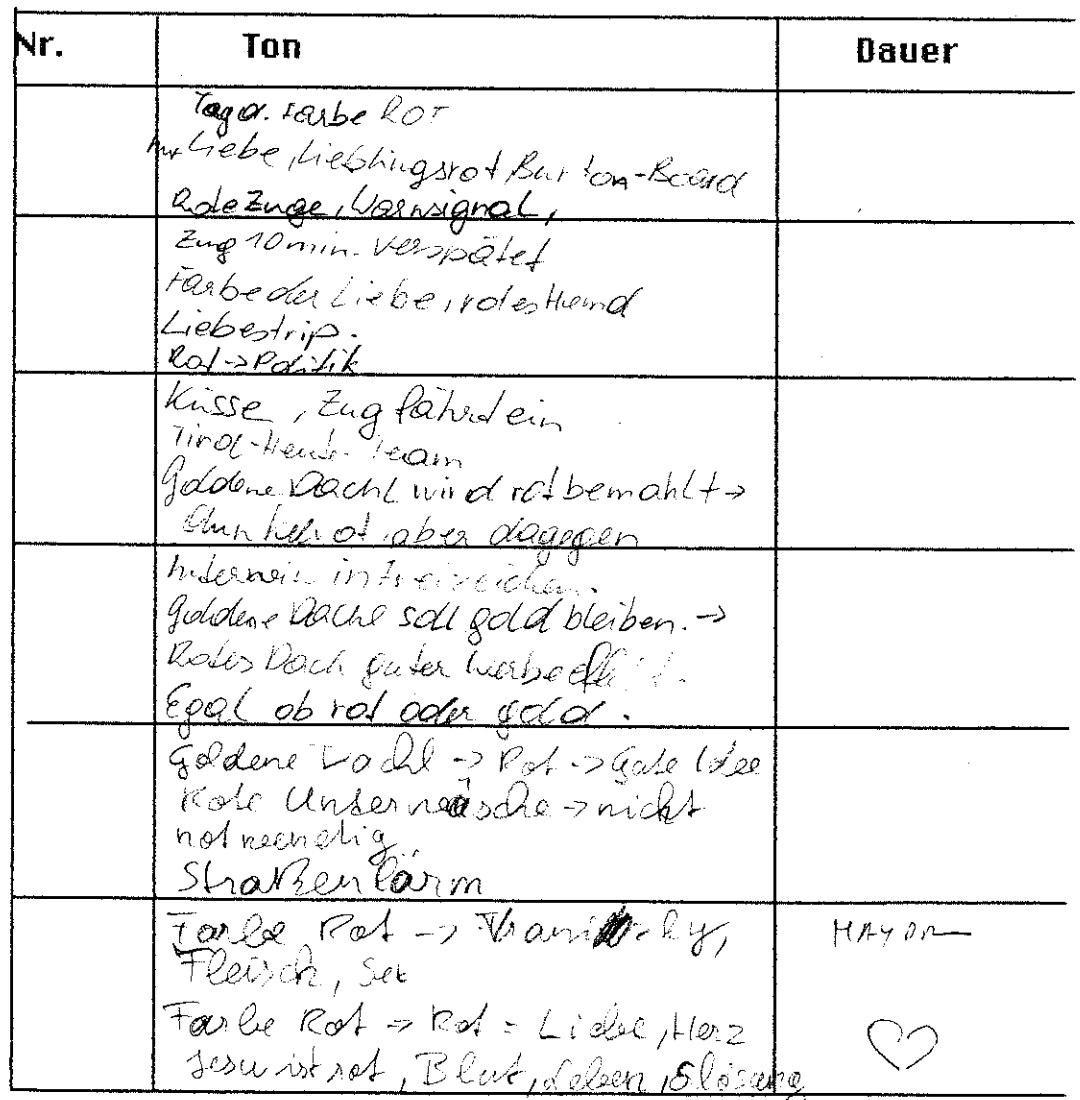 Nr. Ton Dauer
Tag d. Farbe ROT
Liebe, Lieblingsrot Burton-Board
Rote Züge, Warnsignal,
Zug 10 min. Verspätet
Farbe der Liebe, rotes Hemd
Liebestrip.
Rot -> Politik
Küsse, Zug fährt ein
Tirol-Heute-Team
Goldene Dachl wird rot bemahlt ->
aber dagegen
in
goldene Dachl soll gold bleiben. ->
Rotes Dach guter
Egal ob rot oder gold.
Goldene Dachl -> Rot -> Gute Idee
Rote Unterwäsche -> nicht
notwendig
Straßenlärm
Farbe Rot ->
Fleisch,
Farbe Rot -> Rot = Liebe, Herz
Jesu ist rot, Blut, Leben, Erlösung